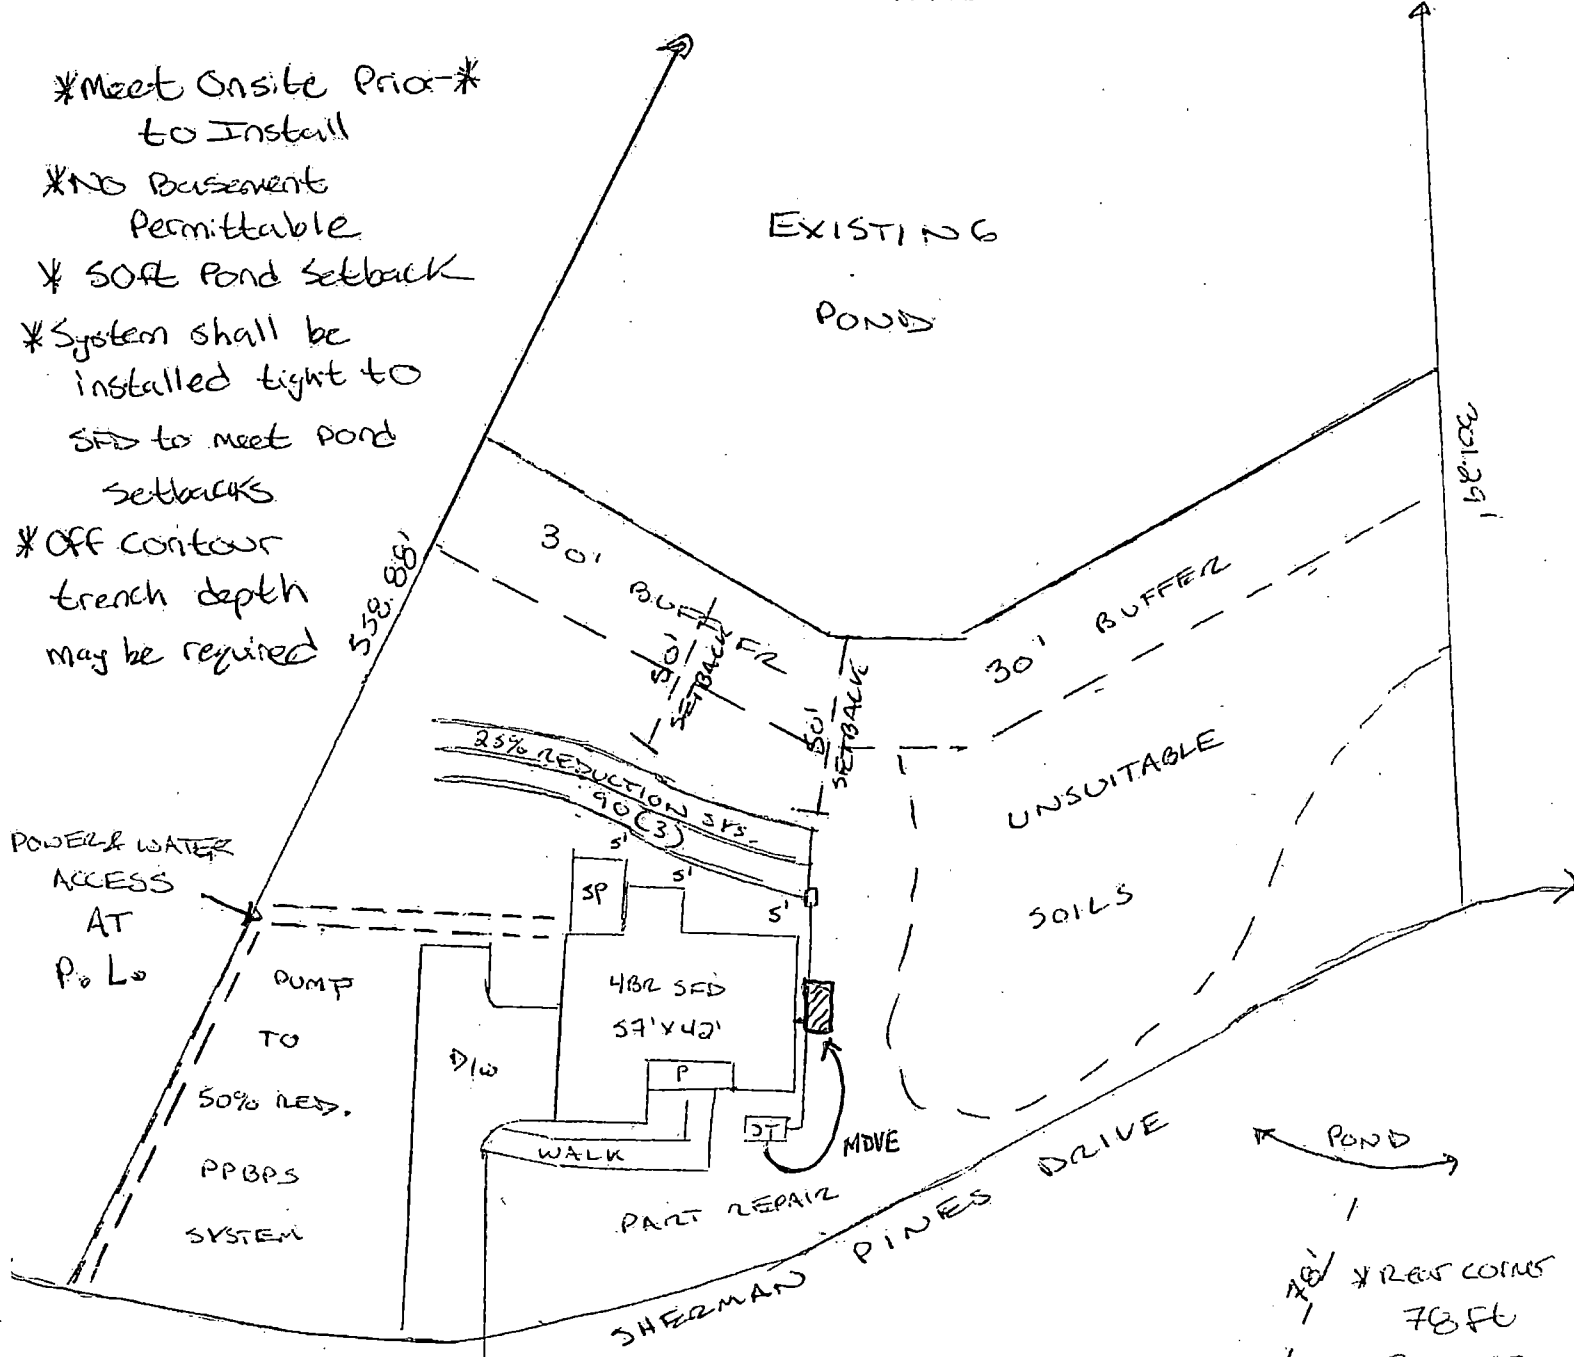 *Meet Onsite Prior*
to Install
*No Basement
Permittable
* 50ft Pond Setback
*System shall be
installed tight to
SFD to meet pond
setbacks
*Off contour
trench depth
may be required
EXISTING
POND
558.88'
301.29'
30' BUFFER
50'
SETBACK
50'
SETBACK
30' BUFFER
25% REDUCTION SYS.
90(3)
5'
5'
5'
UNSUITABLE
SOILS
POWER & WATER
ACCESS
AT
P.L.
SP
4BR SFD
57'X42'
P
D/W
PUMP
TO
50% RED.
PPBPS
SYSTEM
WALK
MOVE
PART REPAIR
SHERMAN PINES DRIVE
POND
78'
*Rear corner
78ft